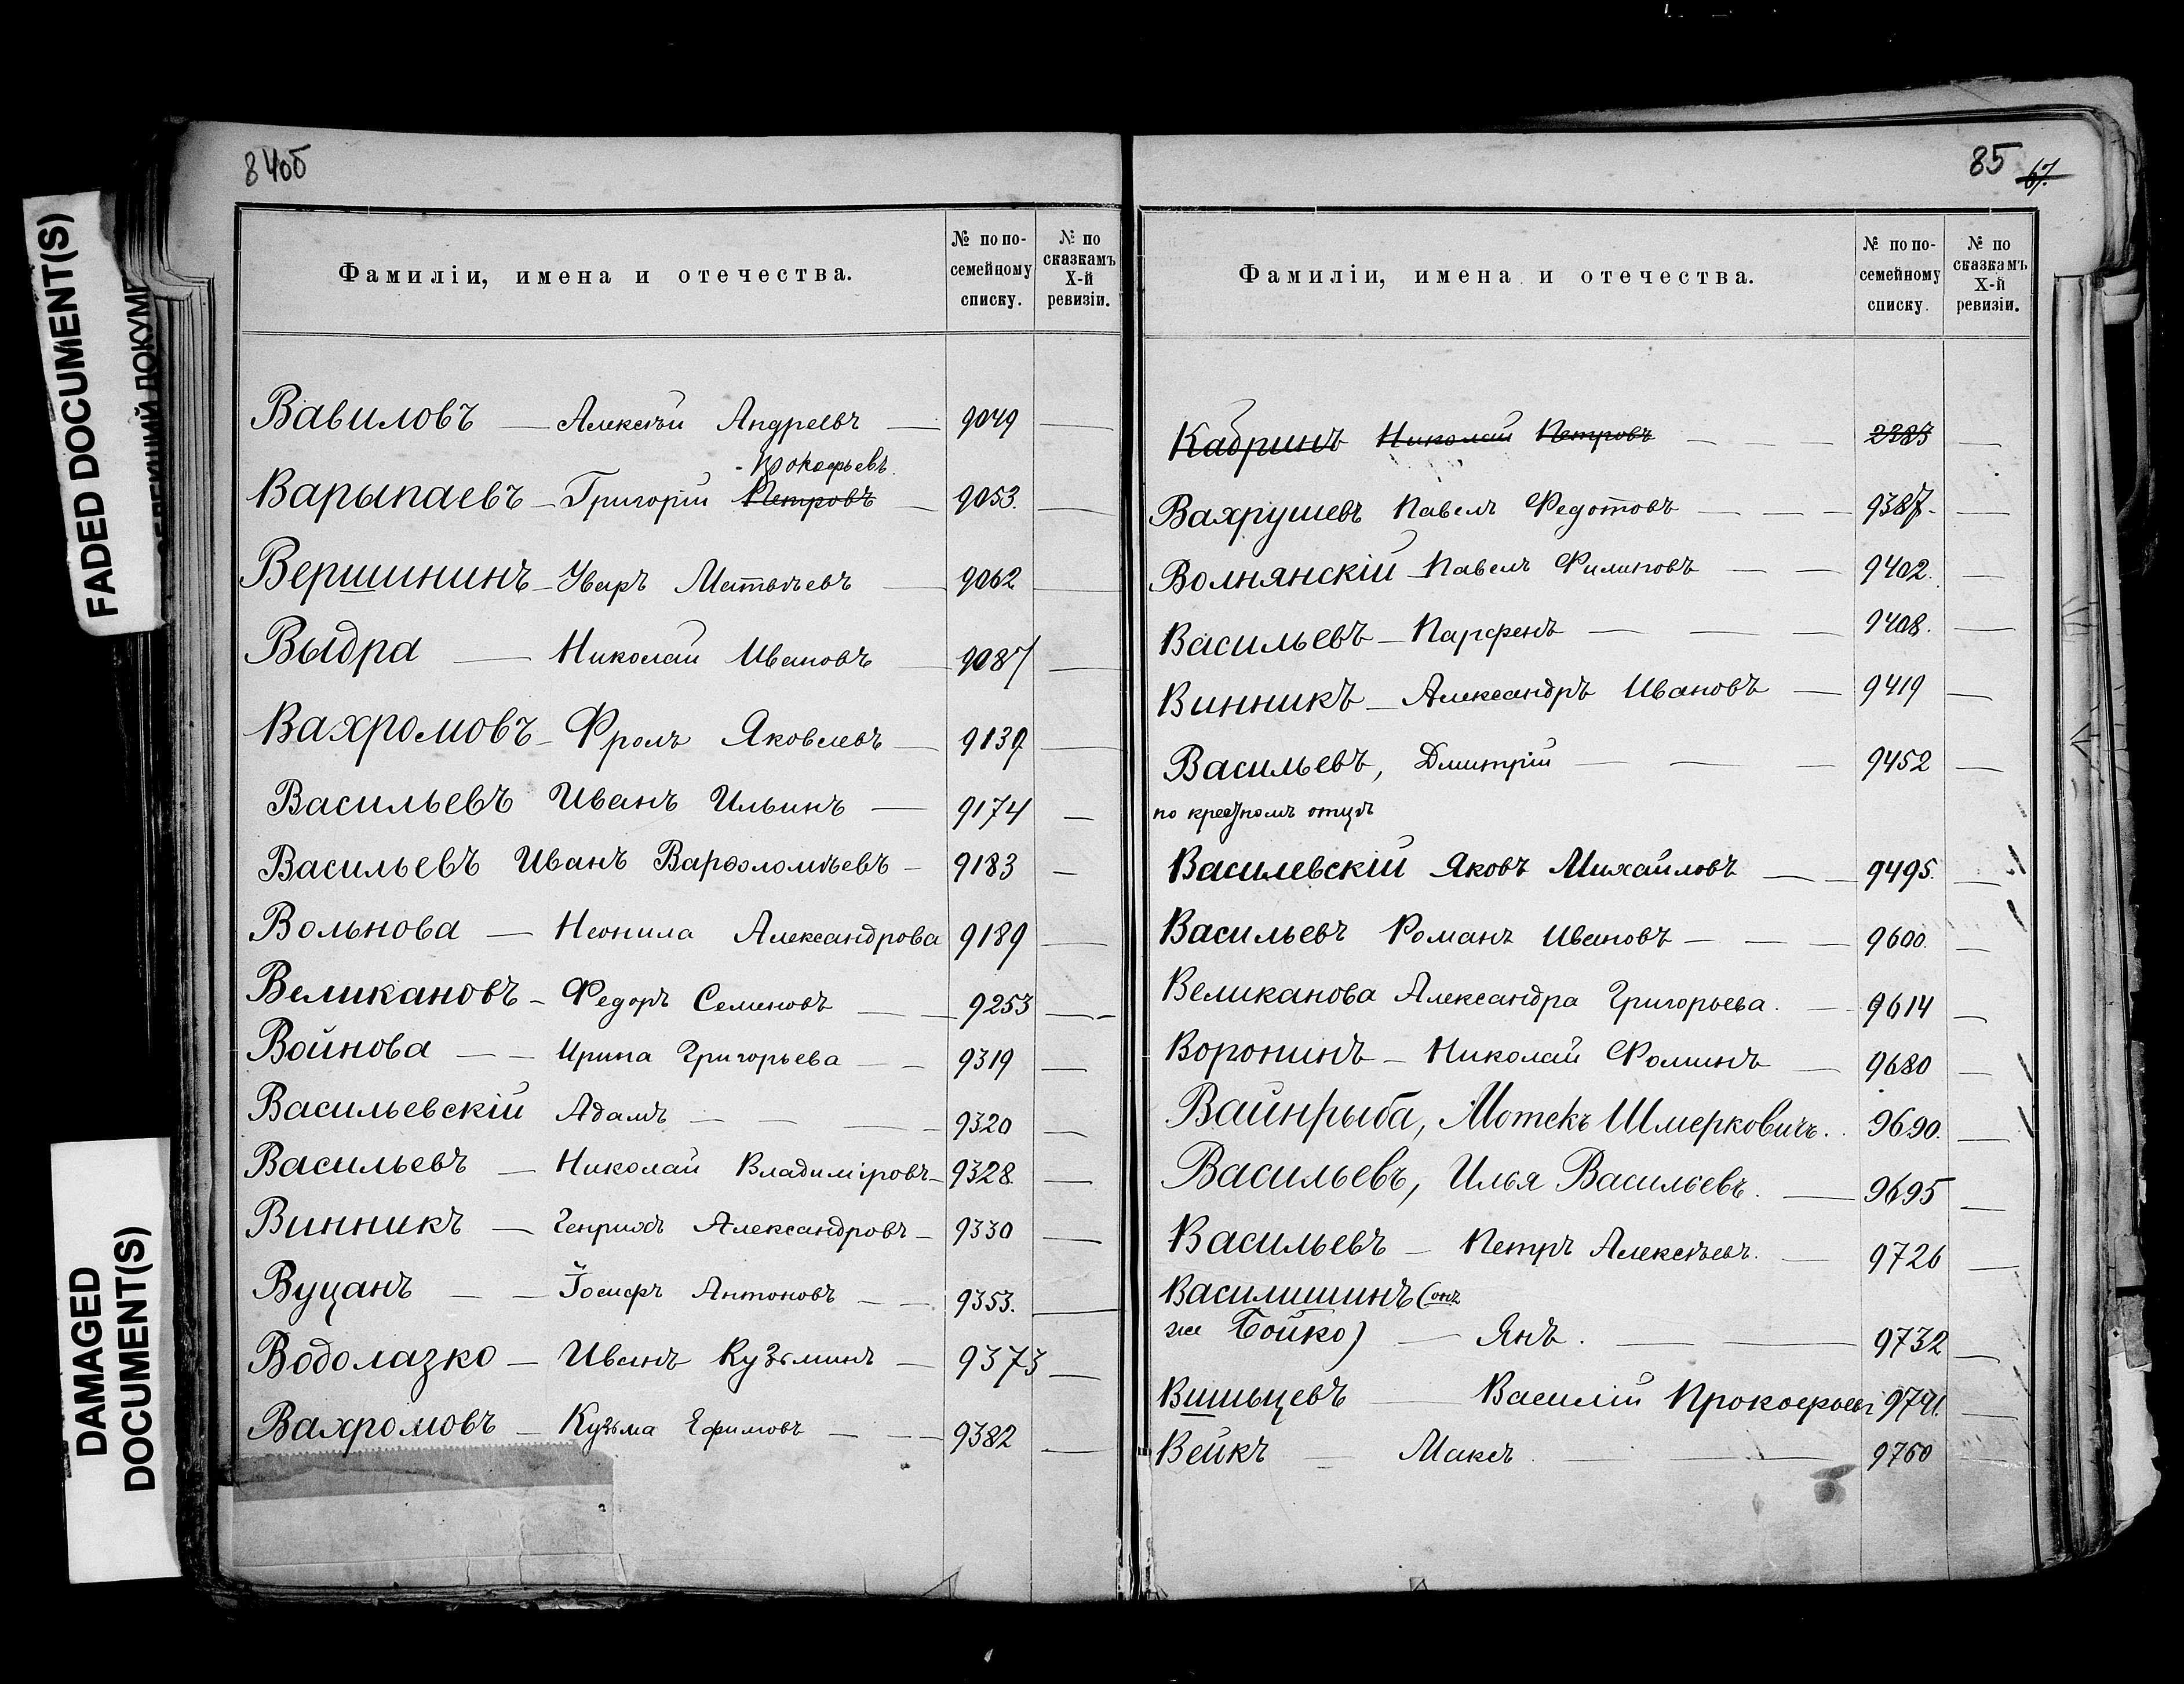 84об
Фамиліи, имена и отечества.
№ по по-
семейному
списку.
№ по
сказкамъ
X-й
ревизіи.
Вавиловъ — Алексѣй Андреевъ — 9049 —
Прокофьевъ
Варыпаевъ — Григорій Петровъ — 9053. —
Вершининъ — Уваръ Матвѣевъ — 9062 —
Выдра — Николай Ивановъ — 9087 —
Вахромовъ — Фролъ Яковлевъ — 9139 —
Васильевъ Иванъ Ильинъ — 9174 —
Васильевъ Иванъ Варѳоломѣевъ — 9183 —
Вольнова — Неонила Александрова 9189 —
Великановъ — Федоръ Семеновъ — — 9253 —
Войнова — — Ирина Григорьева — — 9319 —
Васильевскій Адамъ — — — 9320 —
Васильевъ — Николай Владиміровъ — 9328. —
Винникъ — Генрихъ Александровъ — 9330 —
Вуцанъ — — Іосифъ Антоновъ — — 9353. —
Водолазко — Иванъ Кузьминъ — 9373 —
Вахромовъ — Кузьма Ефимовъ — — 9382 —
85 67.
Фамиліи, имена и отечества.
№ по по-
семейному
списку.
№ по
сказкамъ
X-й
ревизіи.
Кабринъ Николай Петровъ — — — 2285 —
Вахрушевъ Павелъ Федотовъ — — — 9387. —
Волнянскій Павелъ Филиповъ — — 9402. —
Васильевъ — Парфенъ — — — 9408. —
Винникъ — Александръ Ивановъ — 9419 —
Васильевъ, Дмитрій — — — 9452 —
по крестномъ отцѣ
Василевскій Яковъ Михайловъ — — 9495. —
Васильевъ Романъ Ивановъ — — — 9600. —
Великанова Александра Григорьева. — 9614 —
Воронинъ — Николай Фоминъ — 9680 —
Вайнрыба, Мотекъ Шмерковичъ. . 9690. —
Васильевъ, Илья Васильевъ. — 9695 —
Васильевъ — Петръ Алексѣевъ. — 9726 —
Василишинъ (онъ
же Бойко) — Янъ. — — 9732 —
Вишьцевъ — Василій Прокофьевъ 9741. —
Вейкъ — Максъ. — — 9760 —
FADED DOCUMENT(S)
DAMAGED
DOCUMENT(S)